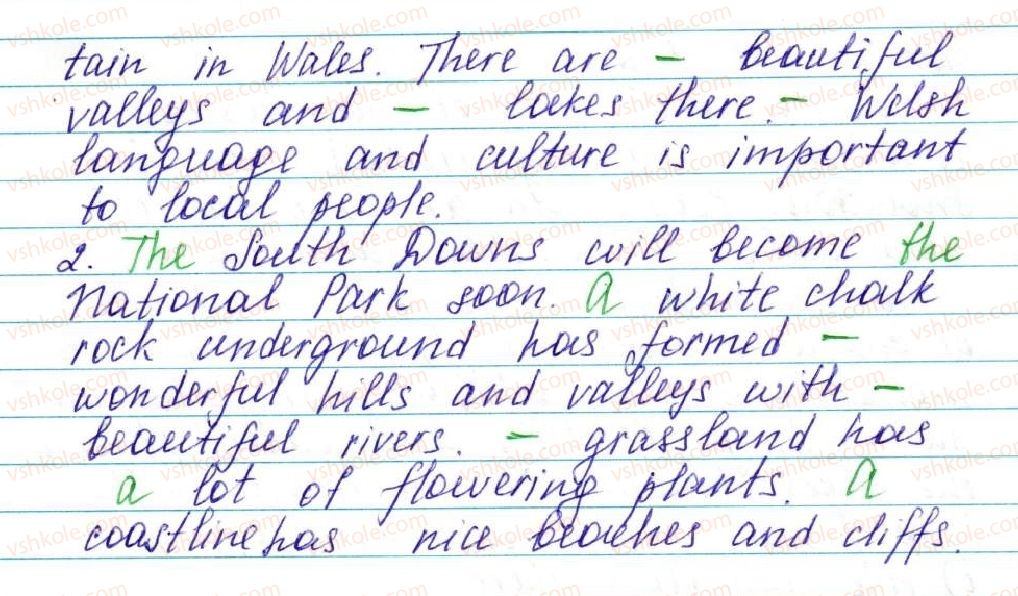 tain in Wales. There are – beautiful
valleys and – lakes there. – Welsh
language and culture is important
to local people.
2. The South Downs will become the
National Park soon. A white chalk
rock underground has formed –
wonderful hills and valleys with –
beautiful rivers. – grassland has
a lot of flowering plants. A
coastline has nice beaches and cliffs.